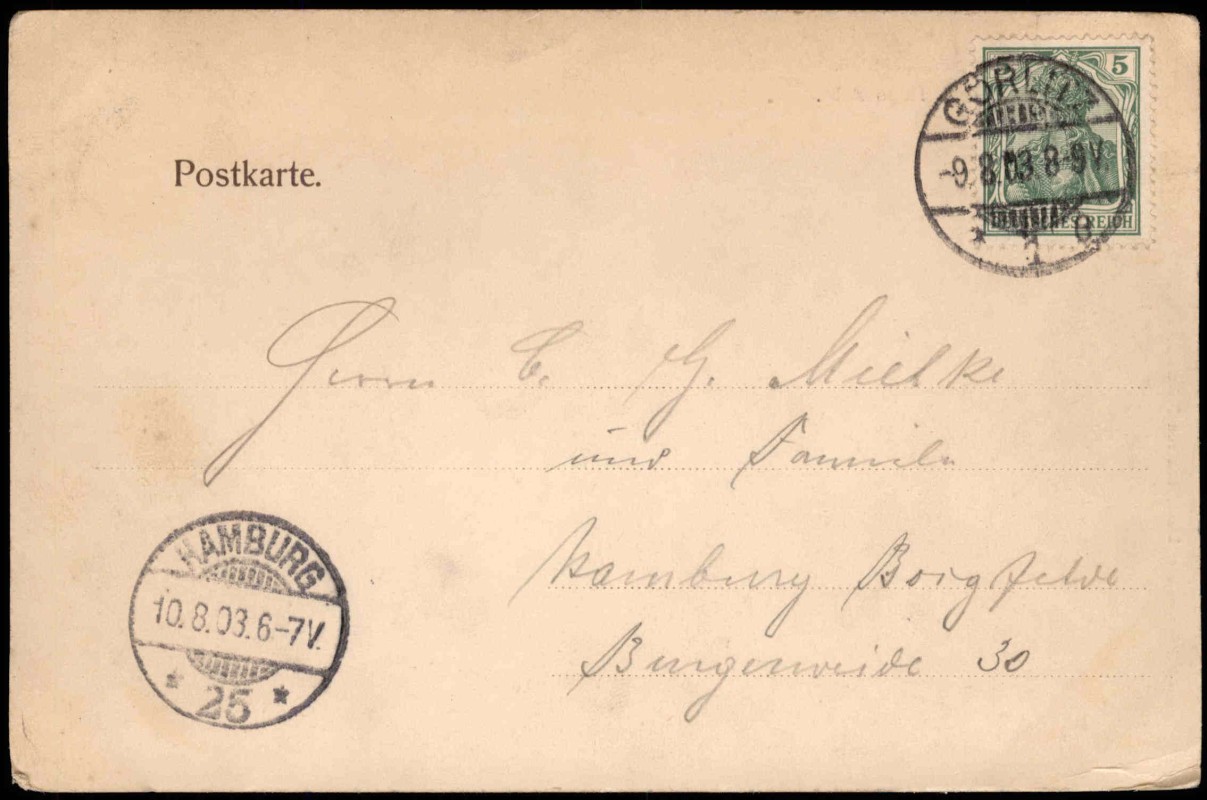 5
GÖRLITZ
-9.8.03.8-9V.
* 1
REICH
Postkarte.
Herrn C. G. Mielke
und Familie
Hamburg Borgfelde
Burgerweide 30
HAMBURG
10.8.03.6-7V.
* 25 *